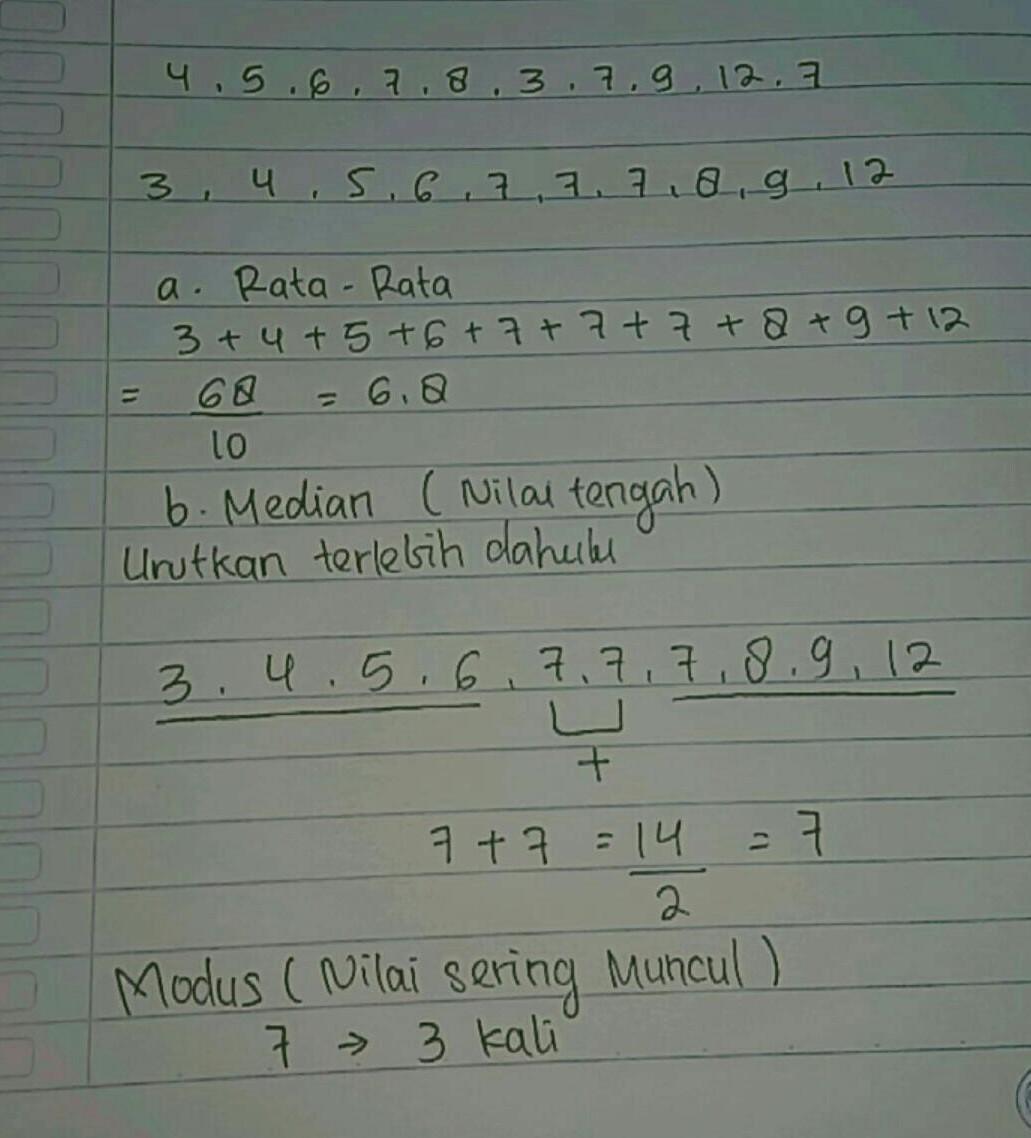 4, 5, 6, 7, 8, 3, 7, 9, 12, 7
3, 4, 5, 6, 7, 7, 7, 8, 9, 12
a. Rata-Rata
3 + 4 + 5 + 6 + 7 + 7 + 7 + 8 + 9 + 12
= 68/10 = 6,8
b. Median (Nilai tengah)
Urutkan terlebih dahulu
3, 4, 5, 6, 7, 7, 7, 8, 9, 12
+
7 + 7 = 14/2 = 7
Modus (Nilai sering Muncul)
7 → 3 kali